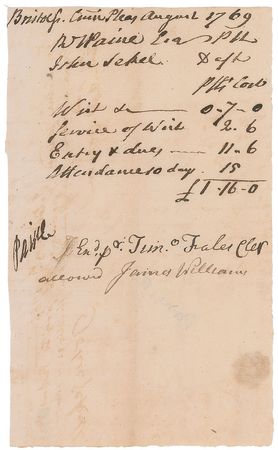 Bristol ss. Com Pleas August 1769
RT Paine Esq Plt
John Deft
Plts Cost
Writ &c 0-7-0
Service of Writ 2-6
Entry & dues 11-6
Attendance 10 days 15
£1-16-0
Ex'd pr. Timo. Fales Cler
allowed James Williams